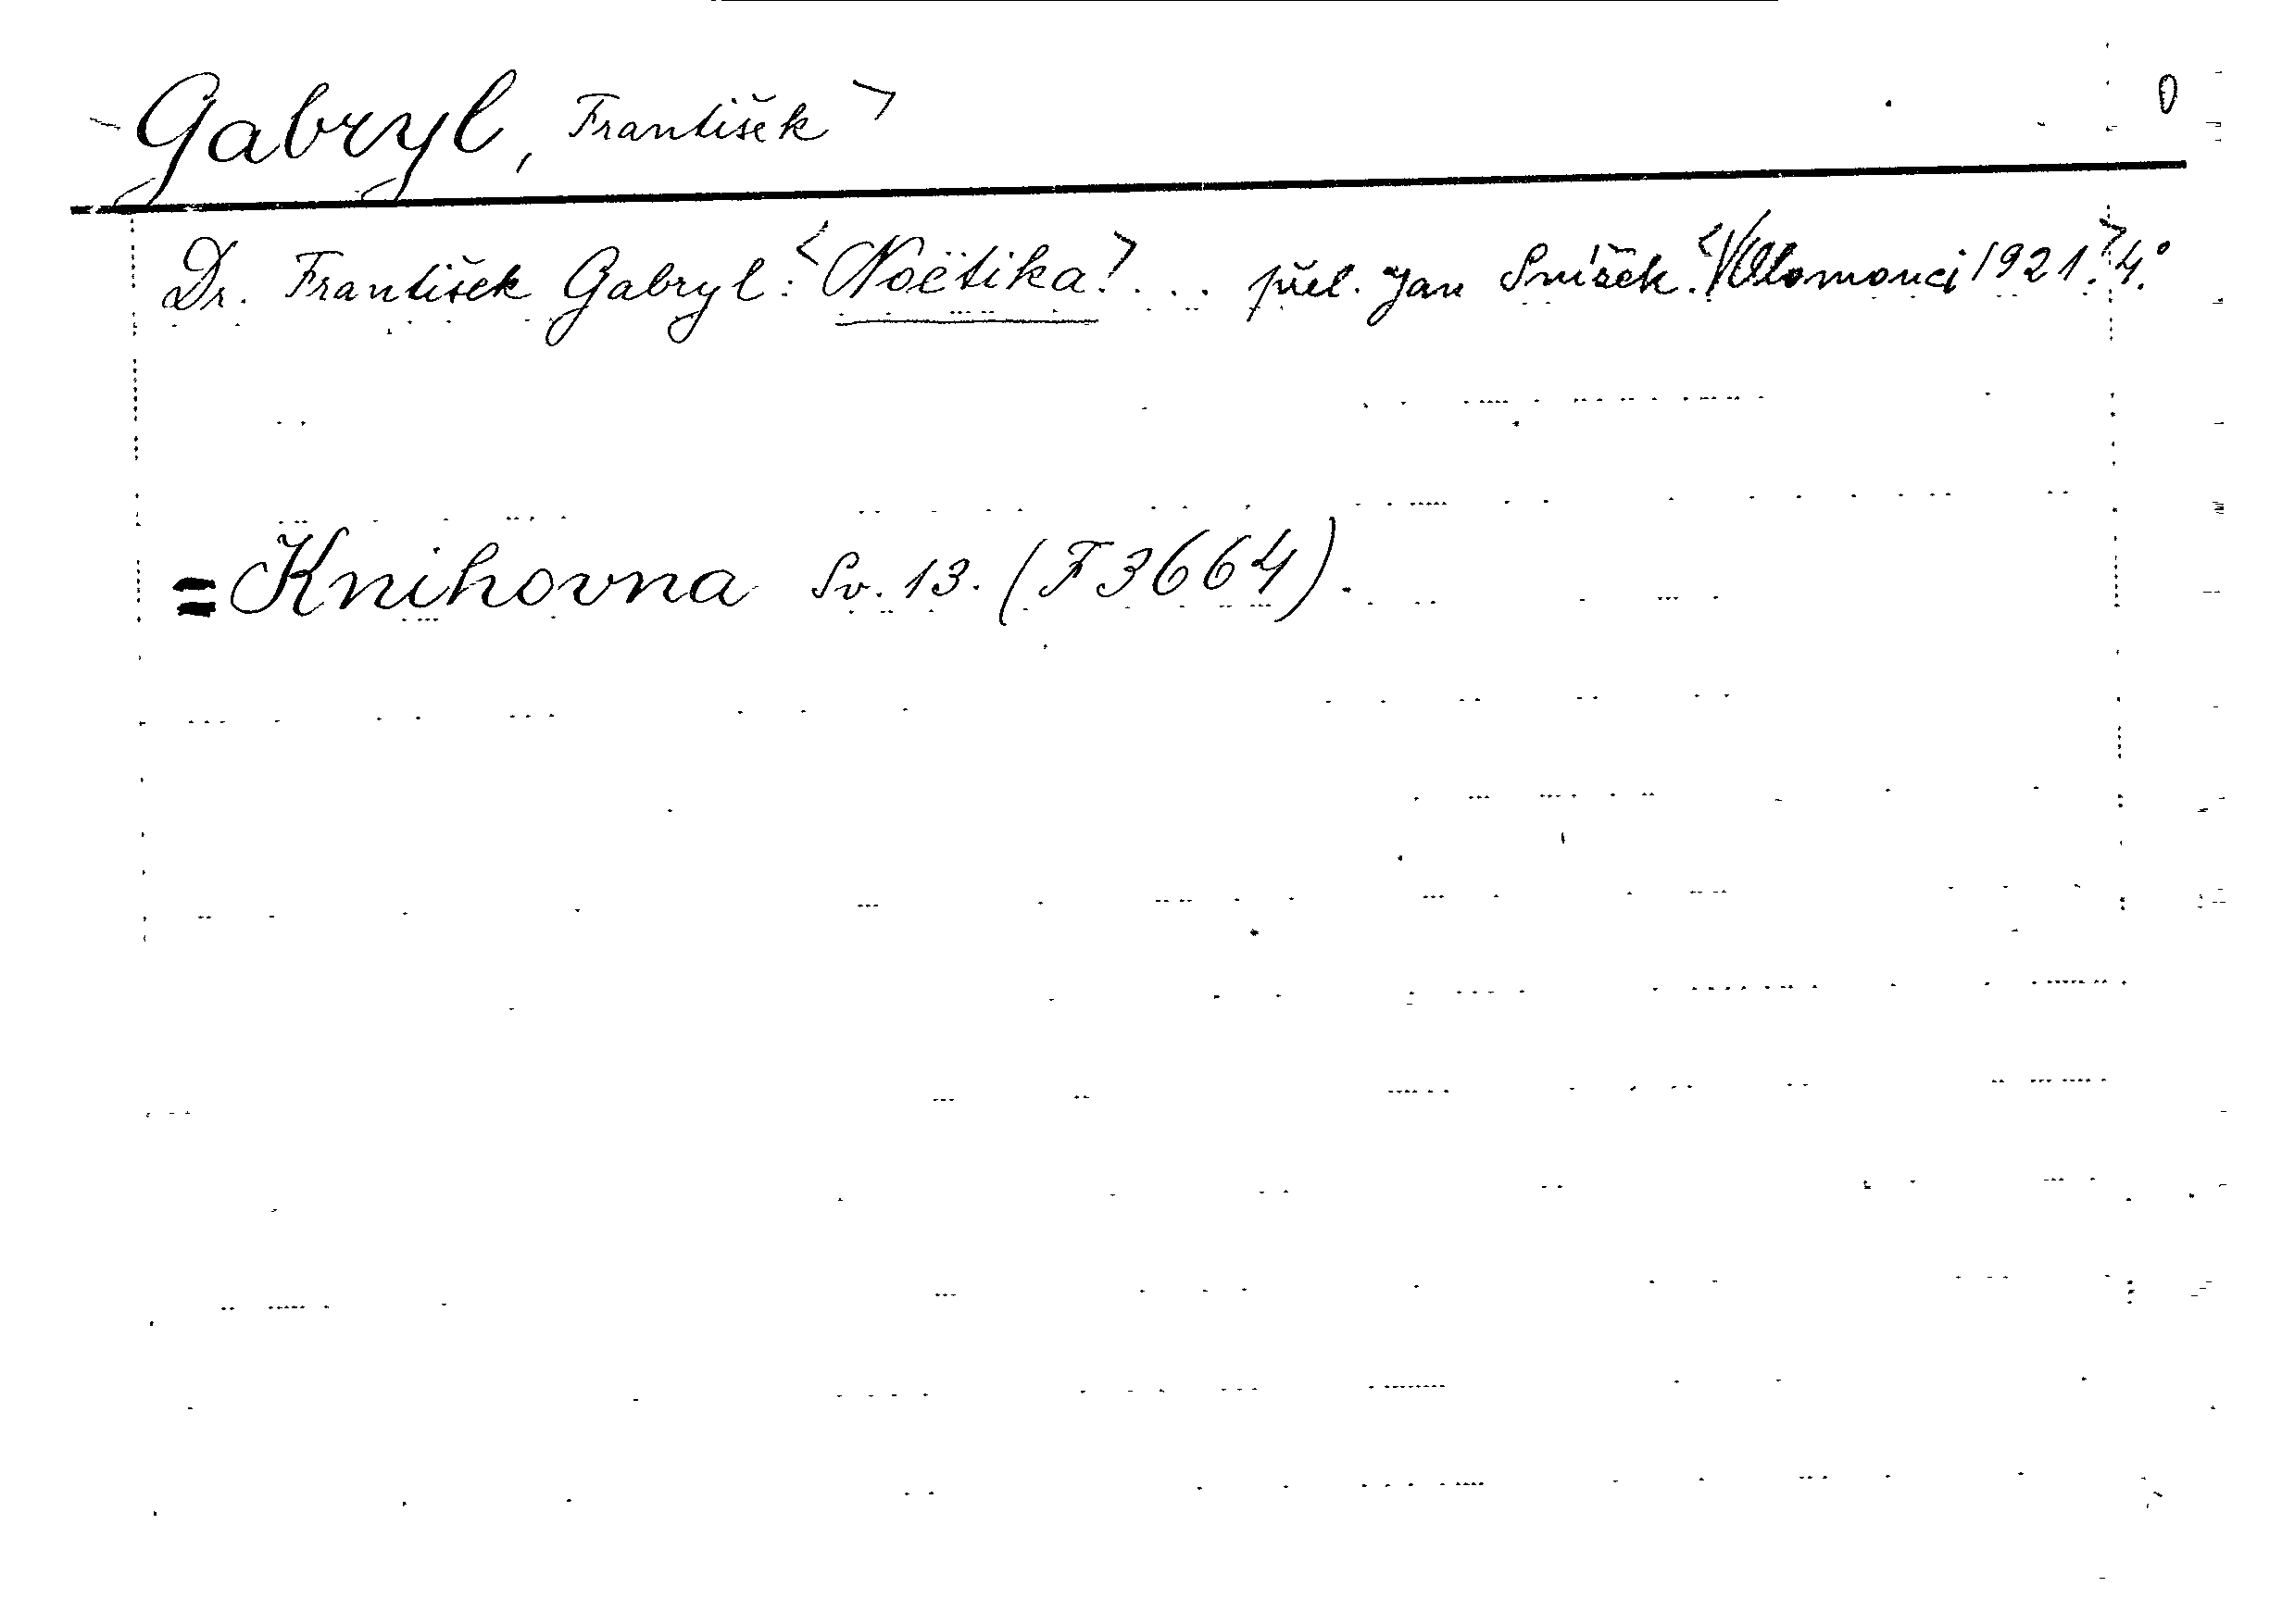 Gabryl, František > 0
Dr. František Gabryl: <Noëtika>... přel. Jan Snížek. <V Olomouci 1921.> 4.°
= Knihovna Sv. 13. (F 3664).